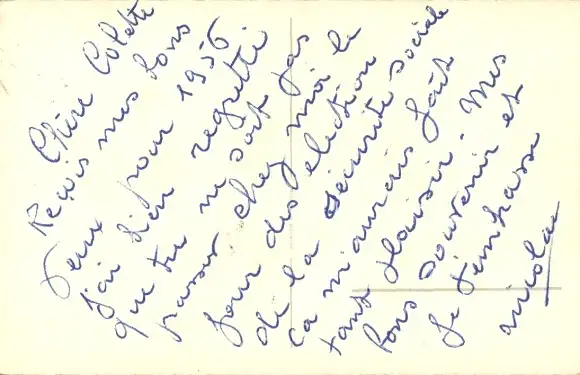 Chère Colette
Reçois mes bons
veux pour 1956
J'ai bien regretti
que tu ne soit pas
passer chez moi le
jour des election
de la sécurité sociale
ca m'aurais fait
tant plaisir. Mes
bons souvenir et
Je t'embrasse
Nicolas